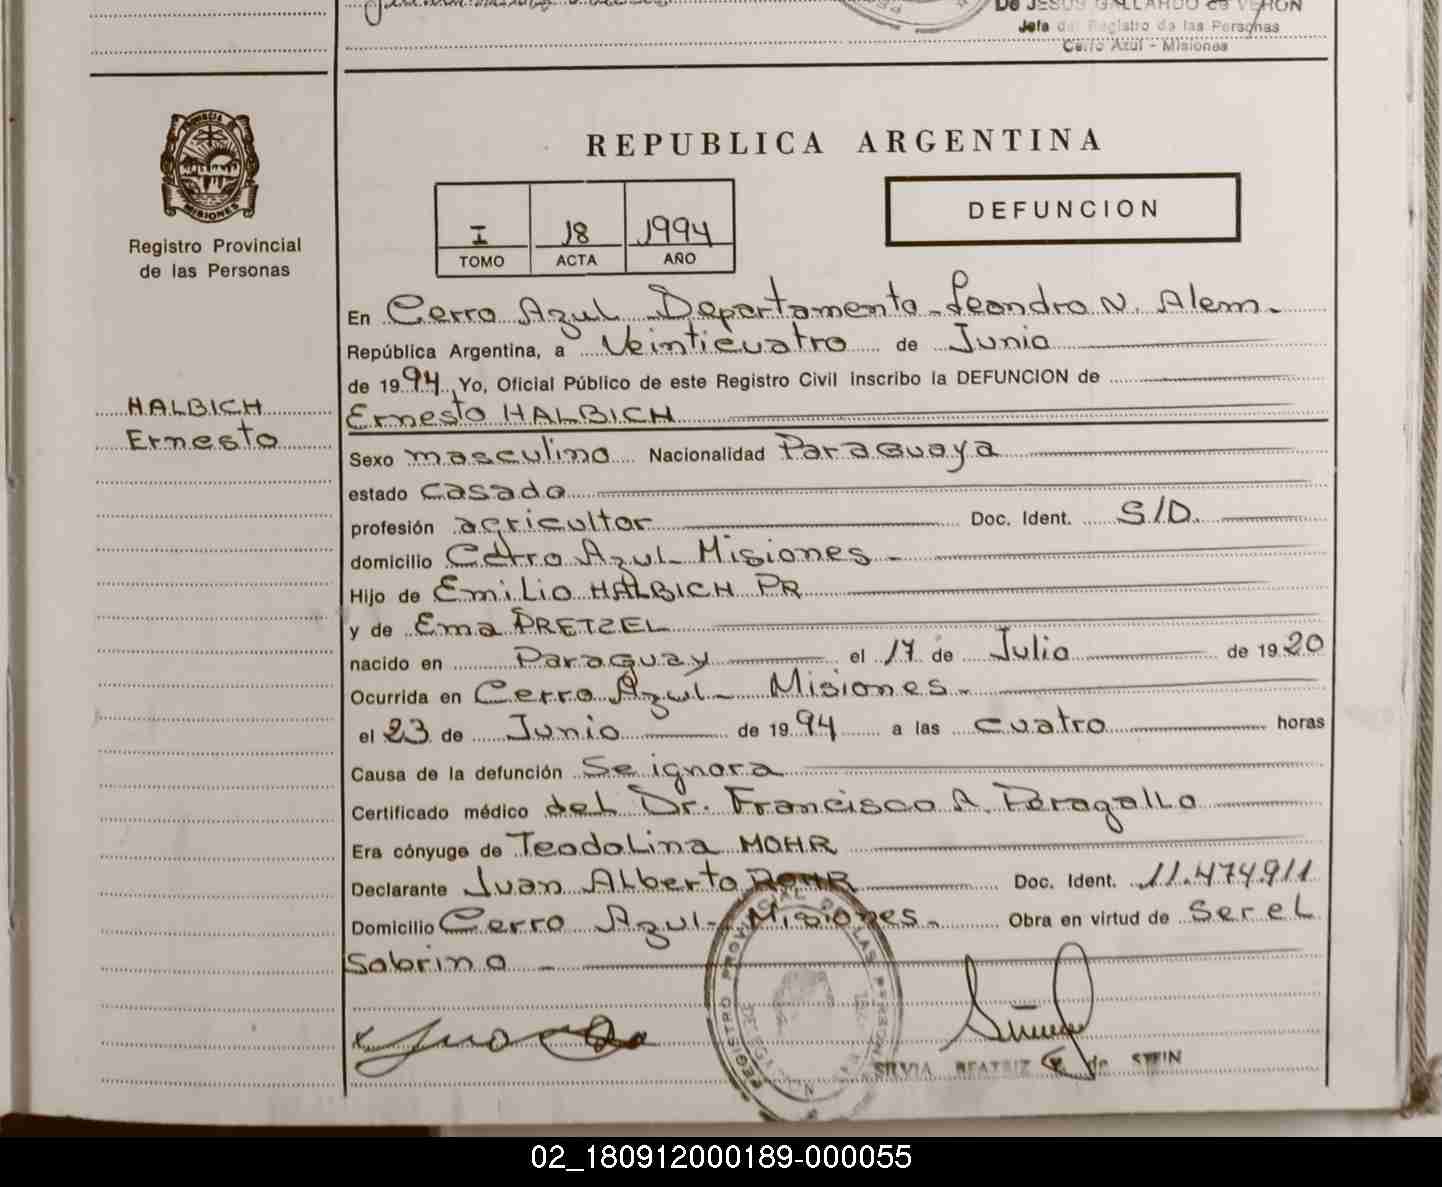 De JESUS GALLARDO de VERON
Jefa del Registro de las Personas
Cerro Azul - Misiones
PROVINCIA DE
MISIONES
Registro Provincial
de las Personas
REPUBLICA ARGENTINA
I 18 1994
TOMO ACTA AÑO
DEFUNCION
En Cerro Azul Departamento Leandro N. Alem.
República Argentina, a Veinticuatro de Junio
de 1994 Yo, Oficial Público de este Registro Civil Inscribo la DEFUNCION de
HALBICH
Ernesto
Ernesto HALBICH
Sexo masculino Nacionalidad Paraguaya
estado casado
profesión agricultor Doc. Ident. S/D.
domicilio Cerro Azul Misiones -
Hijo de Emilio HALBICH PR
y de Ema PRETZEL
nacido en Paraguay el 17 de Julio de 1920
Ocurrida en Cerro Azul - Misiones -
el 23 de Junio de 1994 a las cuatro horas
Causa de la defunción Se ignora
Certificado médico del Dr. Francisco A. Peragallo
Era cónyuge de Teodolina MOHR
Declarante Juan Alberto Doc. Ident. 11.474.911
Domicilio Cerro Azul - Misiones - Obra en virtud de Ser el
Sobrino -
REGISTRO PROVINCIAL DE LAS PERSONAS
SILVIA BEATRIZ de STEIN
02_180912000189-000055